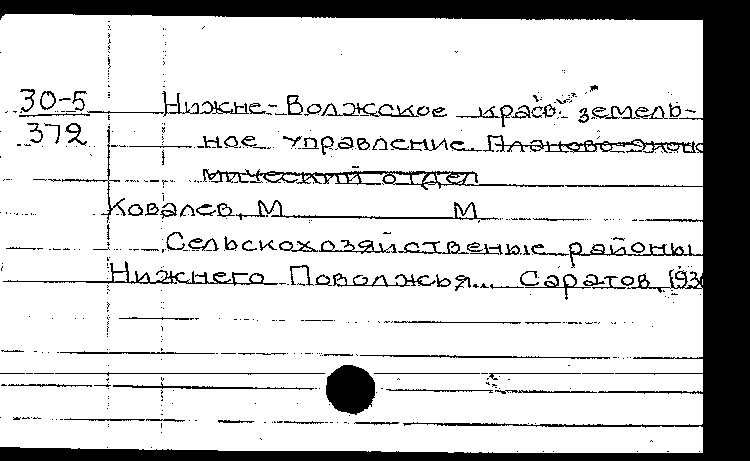 30-5
372
Нижне-Волжское краев. земель-
ное управление. Планово-эконо
мический отдел
Ковалев, М М
Сельскохозяйственые районы
Нижнего Поволжья... Саратов, 193